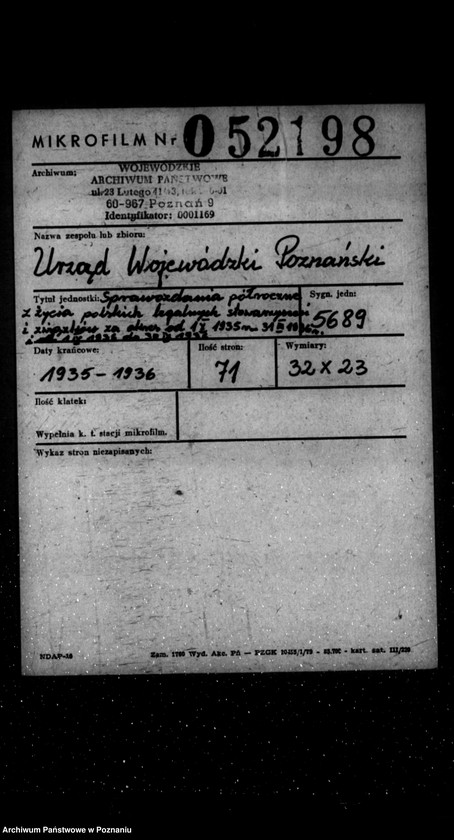 MIKROFILM Nr 052198
Archiwum:
WOJEWÓDZKIE
ARCHIWUM PAŃSTWOWE
ul. 23 Lutego 41/43,
60-967 Poznań 9
Identyfikator: 0001169
Nazwa zespołu lub zbioru:
Urząd Wojewódzki Poznański
Tytuł jednostki: Sprawozdania półroczne
z życia polskich legalnych stowarzyszeń
i związków za okres od 1 X 1935 r. 31 III 1936 r.
Sygn. jedn:
5689
Daty krańcowe:
1935-1936
Ilość stron:
71
Wymiary:
32 x 23
Ilość klatek:
Wypełnia k. t. stacji mikrofilm.
Wykaz stron niezapisanych:
NDAP-16
Zam. 1700 Wyd. Akc. Pń — PZGK
kart. sat. III/220
Archiwum Państwowe w Poznaniu